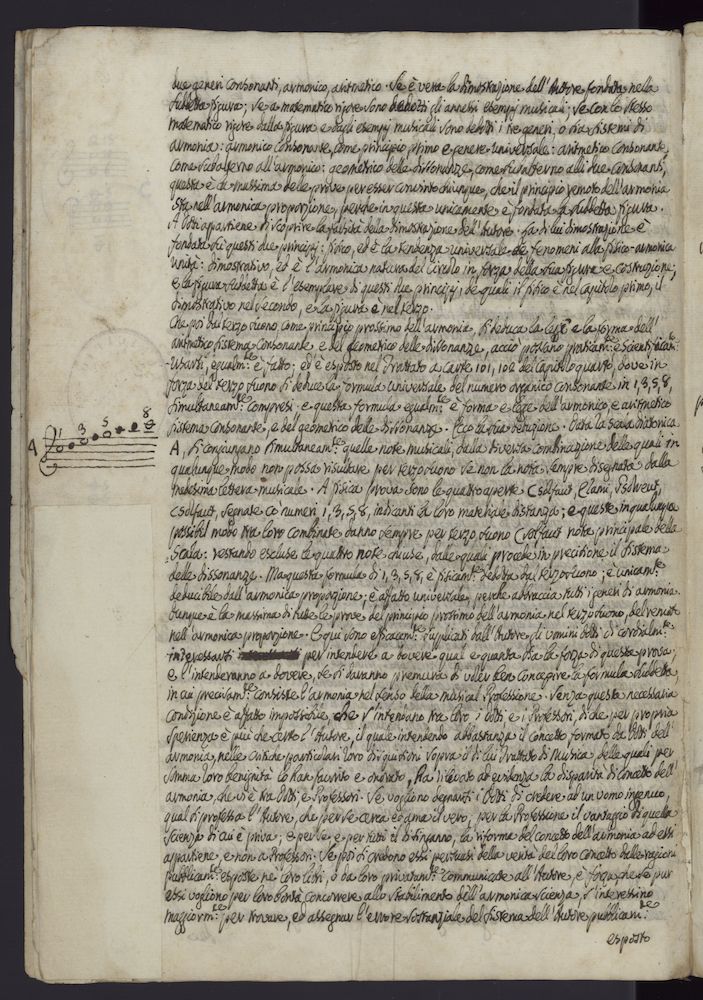 due generi consonanti, armonico, aritmetico. Se è vera la dimostrazione dell'Autore fondata nella
sudetta figura; se a matematico rigore sono dedotti gl'annessi esempj musicali; se con lo stesso
matematico rigore dalla figura e dagli esempj musicali sono dedotti i tre generi, o sia sistemi di
armonia: armonico consonante, come principio primo e genere universale: aritmetico consonante,
come subalterno all'armonico: geometrico delle dissonanze, come subalterno alli due consonanti;
questa è la massima delle prove per esser convinto chiunque, che il principio remoto dell'armonia
sta nell'armonica proporzione, perche in questa unicamente è fondata la sudetta figura.
A Dotti appartiene di scoprire la falsità della dimostrazione dell'Autore. La di lui dimostrazione è
fondata su questi due principj: fisico, ed è la tendenza universale de fenomeni alla fisico-armonica
unità: dimostrativo, ed è l'armonica natura del circolo in forza della sua figura e costruzione;
e la figura sudetta è l'esemplare di questi due principj, de quali il fisico è nel capitolo primo, il
dimostrativo nel secondo, e la figura è nel terzo.
Che poi dal terzo suono come principio prossimo dell'armonia, si deduca la legge e la forma dell'
aritmetico sistema consonante, e del geometrico delle dissonanze, acciò possano praticamte: e scientificamte:
usarsi, egualmte: è fatto: ed è esposto nel Trattato a carte 101, 102 del capitolo quarto, dove in
forza del terzo suono si deduce la formula universale del numero organico consonante in 1, 3, 5, 8,
simultaneamte: compresi. e questa formula egualmte: è forma e legge dell'armonico, e aritmetico
sistema consonante, e del geometrico delle dissonanze. Ecco la sua deduzione. Data la scala diatonica
A, si congiungano simultaneamte: quelle note musicali, dalla diversa combinazione delle quali in
qualunque modo non possa risultare per terzo suono se non la nota sempre disegnata dalla
medesima lettera musicale. A fisica prova sono le quattro aperte Csolfaut, Elami, Gsolreut,
Csolfaut, segnate co numeri 1, 3, 5, 8, indicanti la loro materiale distanza; e queste in qualunque
possibil modo tra loro combinate danno sempre per terzo suono Csolfaut nota principale della
Scala: restando escluse le quattro note chiuse, dalle quali procede in precisione il sistema
delle dissonanze. Ma questa formula di 1, 3, 5, 8, è fisicamte: dedotta dal terzo suono; è unicamte:
deducibile dall'armonica proporzione; è affatto universale, perche abbraccia tutti i generi di armonia.
Dunque è la massima di tutte le prove del principio prossimo dell'armonia nel terzo suono, del remoto
nell'armonica proporzione. E qui sono efficacemte: supplicati dall'Autore gl'uomini dotti di cordialmte:
interessarsi per intendere a dovere qual e quanta sia la forza di questa prova;
e l'intenderanno a dovere, se si daranno premura di voler ben concepire la formula sudetta,
in cui precisamte: consiste l'armonia nel senso della musical Professione. Senza questa necessaria
condizione è affatto impossibile, che s'intendano tra loro i Dotti e i Professori, di che per propria
sperienza è più che certo l'Autore, il quale intendendo abbastanza il concetto formato da Dotti dell'
armonia, nelle critiche particolari loro discussioni sopra il di lui Trattato di Musica, delle quali per
somma loro benignità lo han favorito e onorato, ha rilevato ad evidenza la disparità di concetto dell'
armonia, che vi è tra Dotti e Professori. Se vogliono degnarsi i Dotti di credere ad un uomo ingenuo,
qual si professa l'Autore, che per se cerca ed ama il vero, per la Professione il vantaggio di quella
scienza di cui è priva; e per se e per tutti il disinganno, la riforma del concetto dell'armonia ad essi
appartiene, e non a Professori. Se poi si credono essi persuasi della verità del loro concetto dalle ragioni
pubblicamte: esposte ne loro libri, o da loro privatamte: communicate all'Autore, è forza che se pur
essi vogliono per loro bontà concorrere allo stabilimento dell'armonica scienza, s'interessino
maggiormte: per trovare, ed assegnar l'errore sostanziale del sistema dell'Autore pubblicamte:
esposto
A
1 3 5 8